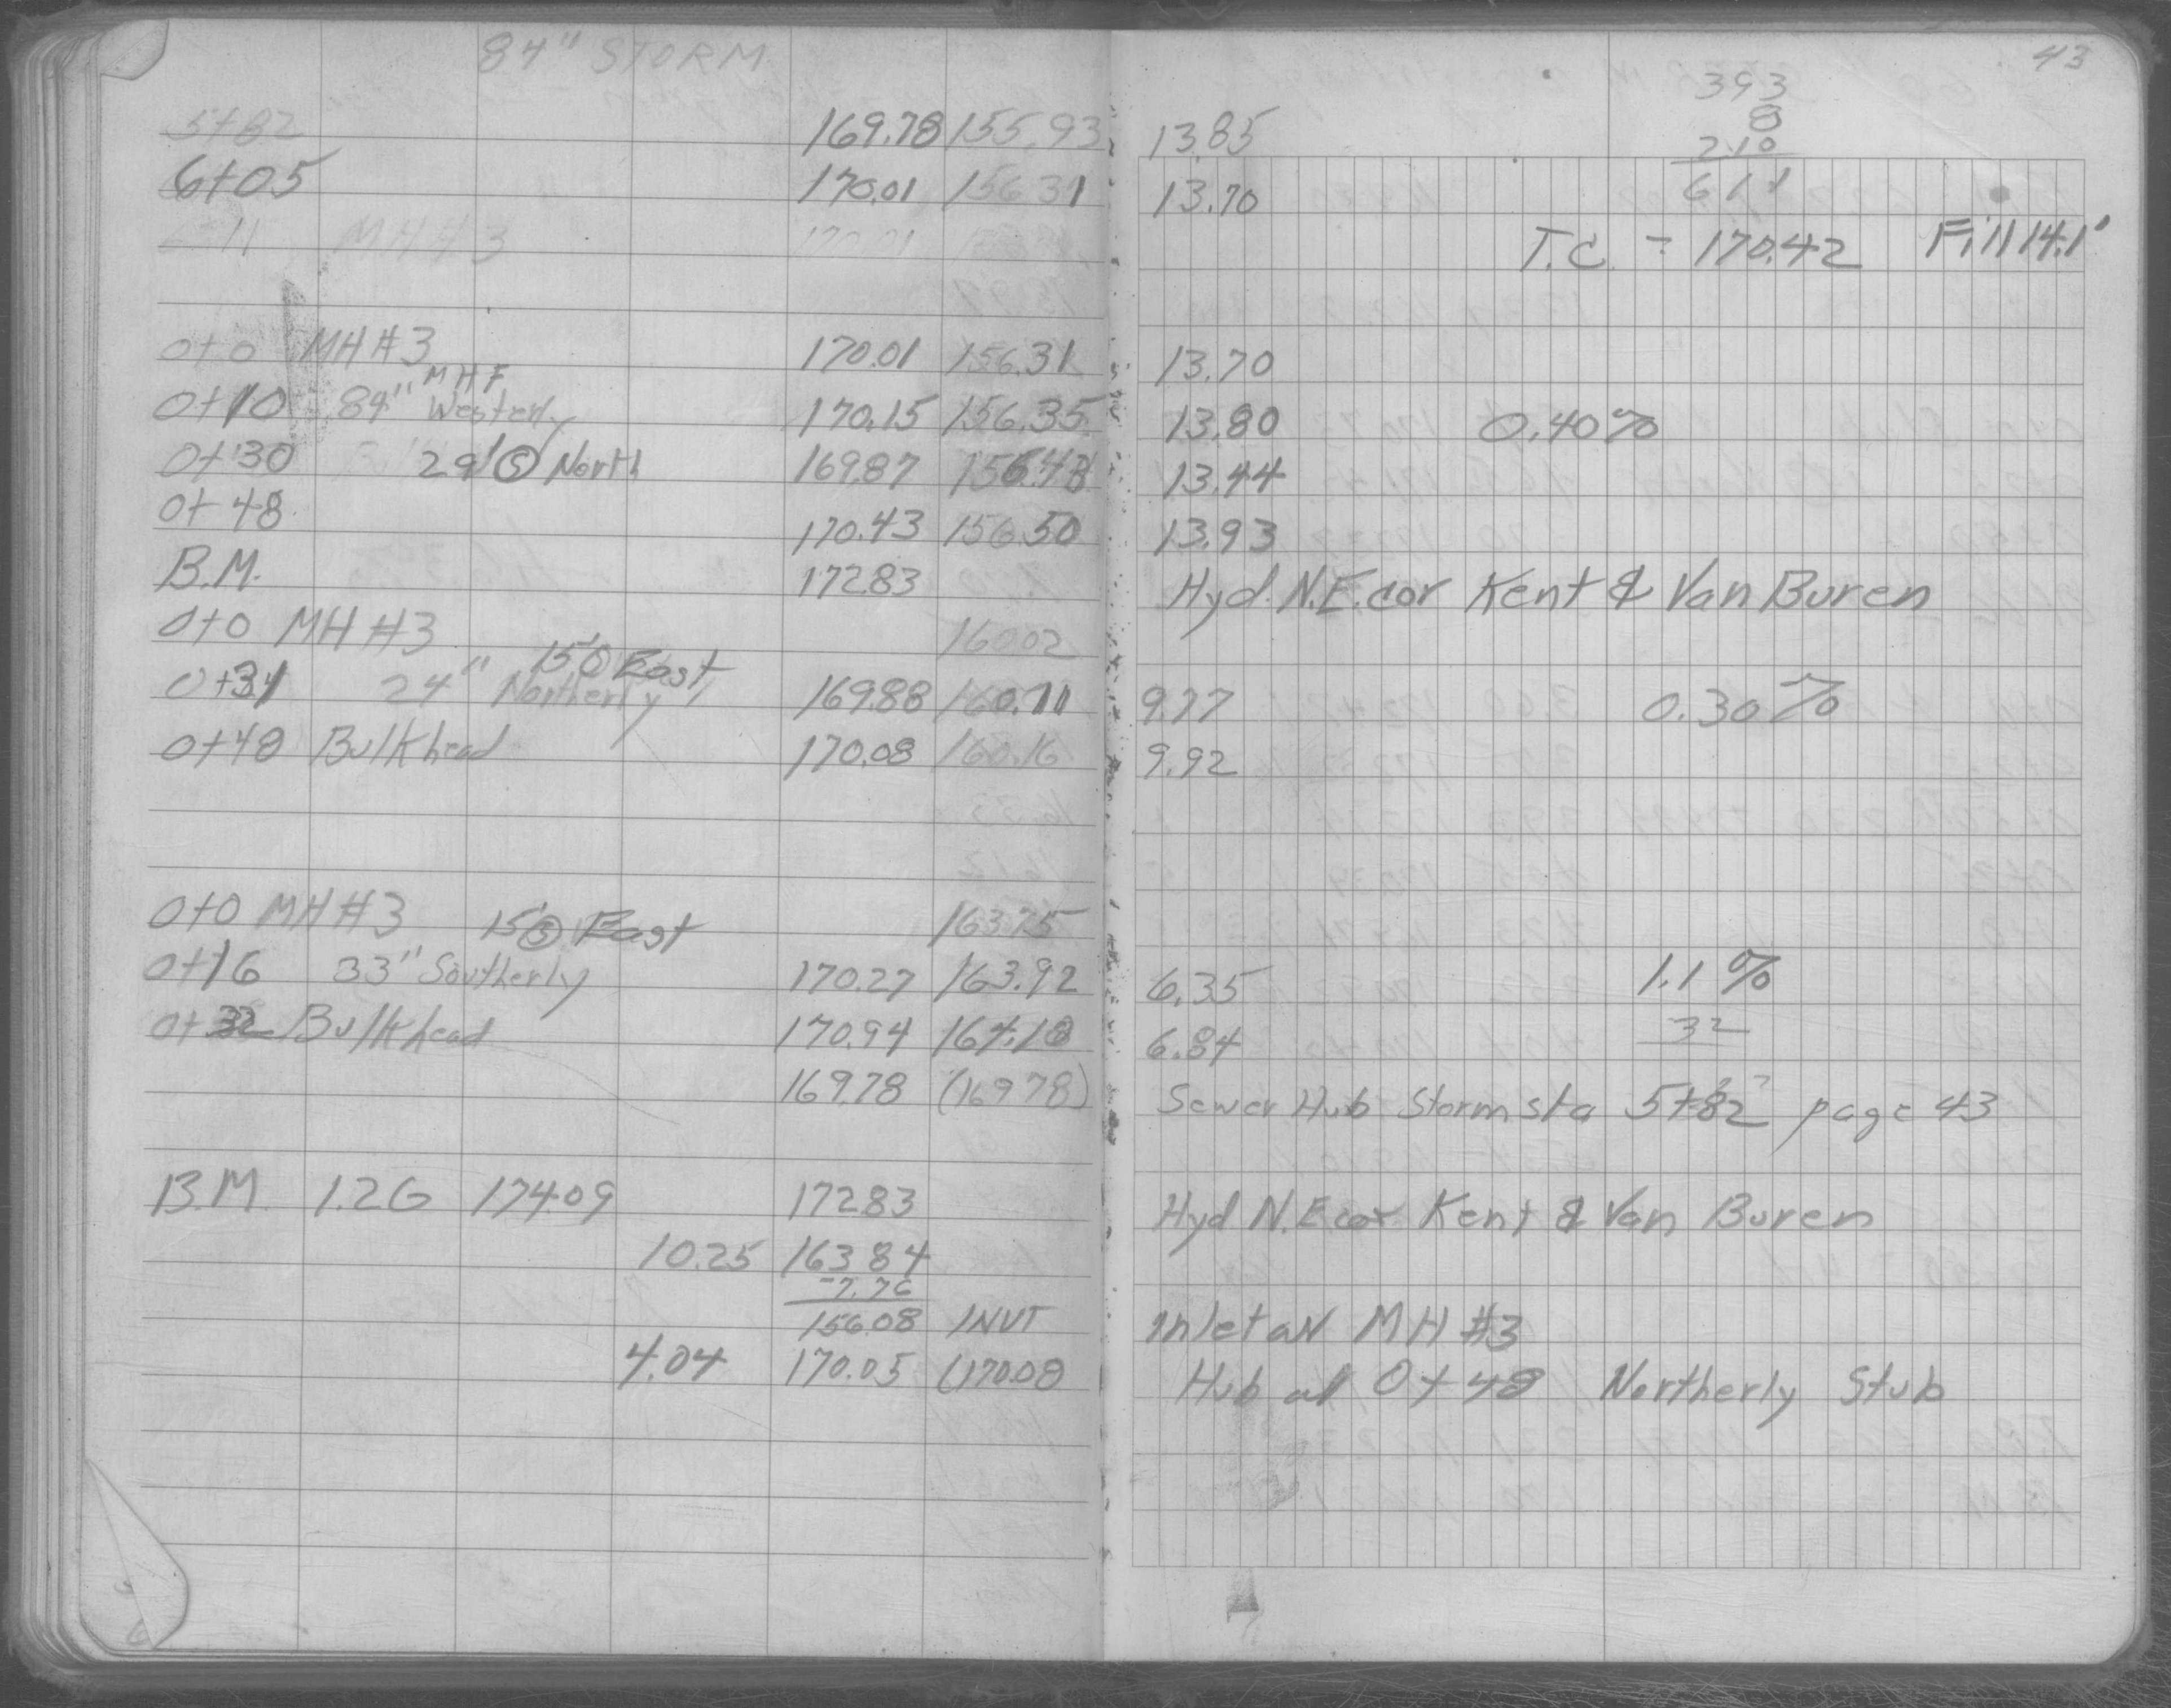 84" STORM
43
393
8
210
611
5+82 169.78 155.93 13.85
6+05 170.01 156.31 13.70
6+11 MH#3 170.01
T.C. = 170.42 Fill 14.1'
0+0 MH#3 170.01 156.31 13.70
MHF
0+10 84" Westerly 170.15 156.35 13.80 0.40%
0+30 29' Ⓢ North 169.87 156.43 13.44
0+48 170.43 156.50 13.93
B.M. 172.83 Hyd. N.E. cor Kent & Van Buren
0+0 MH#3 160.02
15' East
0+31 24" Northerly 169.88 160.11 9.77 0.30%
0+48 Bulkhead 170.08 160.16 9.92
0+0 MH#3 15' Ⓢ East 163.75
0+16 33" Southerly 170.27 163.92 6.35 1.1%
0+32 Bulkhead 170.94 164.10 6.84 32
169.78 (169.78) Sewer Hub Storm sta 5+82 page 43
B.M. 1.26 174.09 172.83 Hyd N.E cor Kent & Van Buren
10.25 163.84
-7.76
156.08 INVT Inlet at MH #3
4.04 170.05 (170.08 Hub at 0+48 Northerly Stub